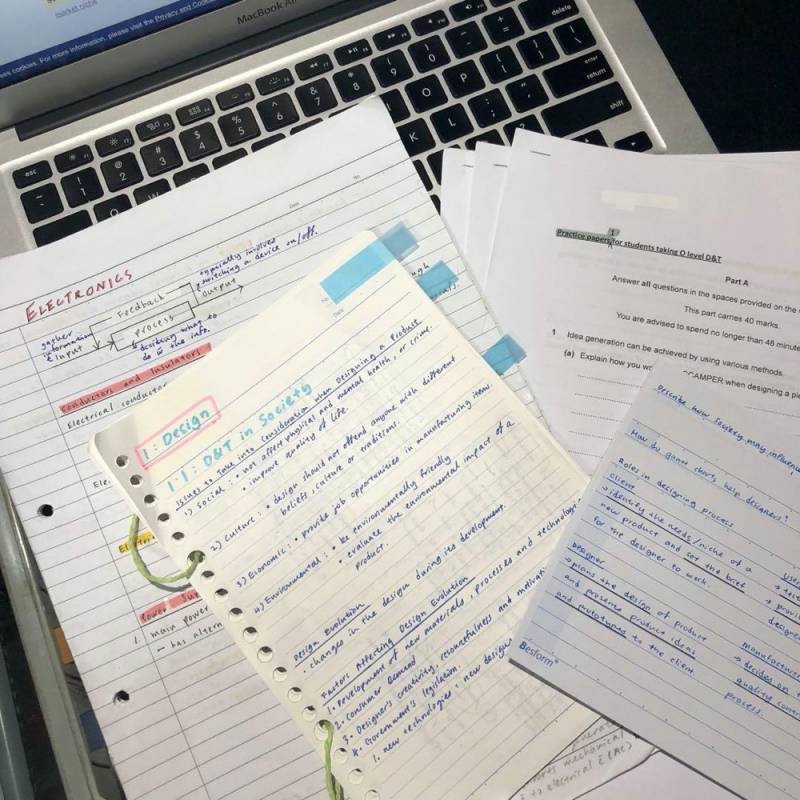 market niche
uses cookies. For more information, please visit the Privacy and Cookies
MacBook Air
ELECTRONICS
Feedback
Process
Output
gather
information
Input
typically involves
switching a device on/off.
deciding what to
do w the info.
Conductors and Insulators
Electrical conductor
Ele
Electr
Power Su
1. main power
- has altern
No.
Date
1: Design
1.1: D&T in Society
Issues to take into consideration when designing a product
1) social: • not affect physical and mental health, or crime.
• improve quality of life.
2) Culture: • design should not offend anyone with different
beliefs, culture or traditions.
3) Economic: • provide job opportunities in manufacturing items.
4) Environmental: • be environmentally friendly
• evaluate the environmental impact of a
product.
Design Evolution
• changes in the design during its development.
Factors Affecting Design Evolution
1. Development of new materials, processes and technologi
2. Consumer Demand
3. Designer's creativity, resourcefulness and motivati
4. Government's legislation.
1. new technologies, new design
Practice paper 1 for students taking O level D&T
Part A
Answer all questions in the spaces provided on the
This part carries 40 marks.
You are advised to spend no longer than 48 minute
1 Idea generation can be achieved by using various methods.
(a) Explain how you wo SCAMPER when designing a pi
Describe how society may influence
How do gantt charts help designers?
Roles in designing process
client
→ identify the needs/niche of a
new product and set the brief
for the designer to work.
Designer
→ plans the design of product
and presents product ideas
and prototypes to the client.
Manufacture
→ decides on
quality contr
process.
Besform
mechanical
to electrical E (AC)